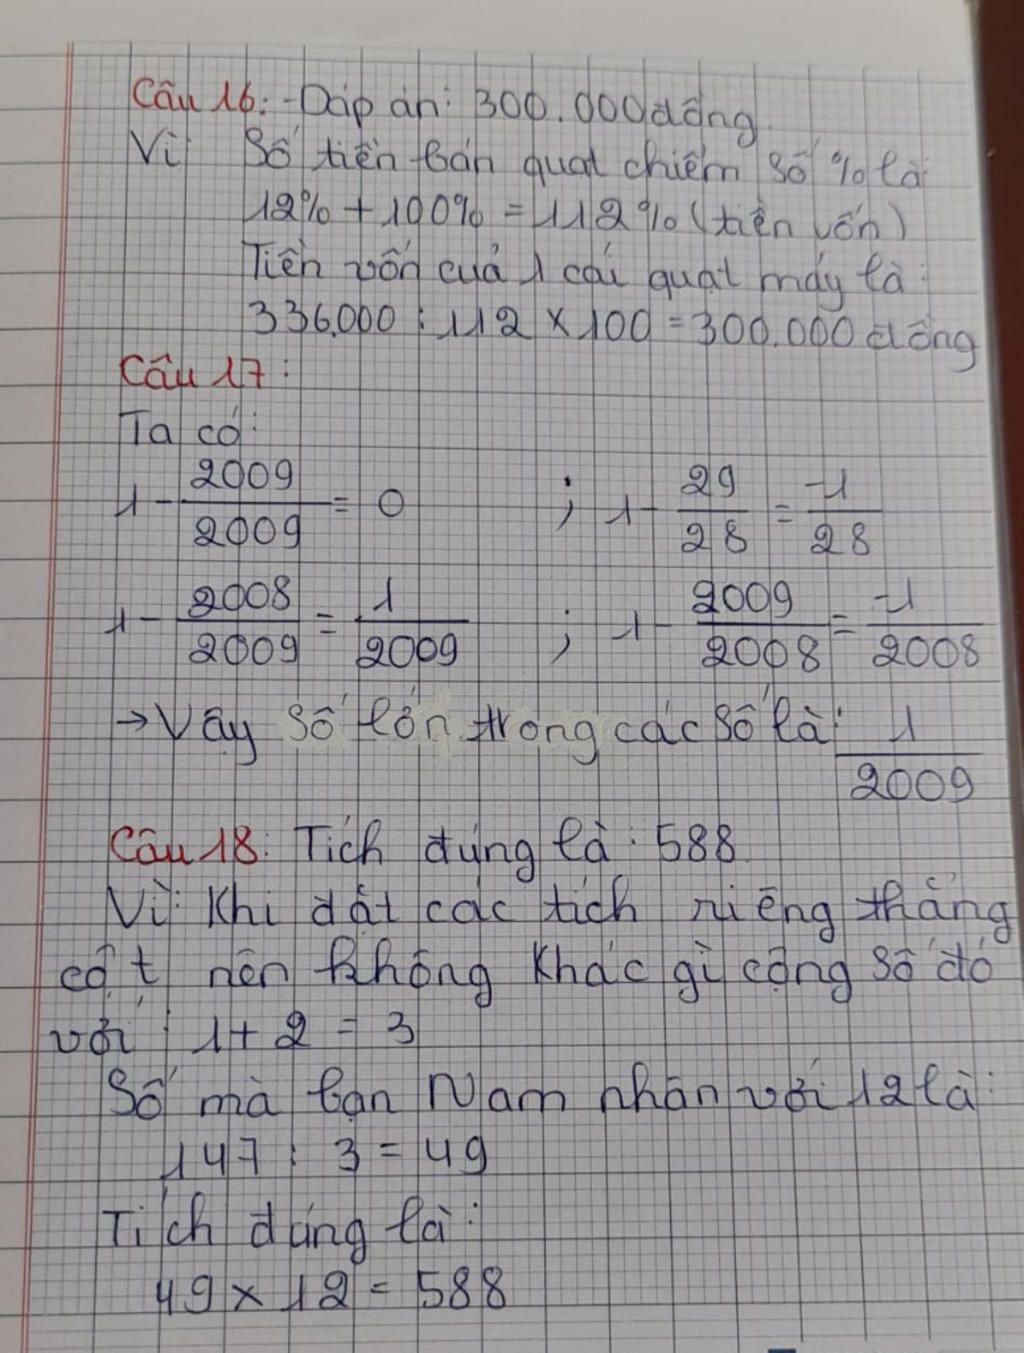 Câu 16: -Đáp án: 300.000 đồng
Vì Số tiền bán quạt chiếm số % là
12% + 100% = 112% (tiền vốn)
Tiền vốn của 1 cái quạt máy là:
336.000 : 112 x 100 = 300.000 đồng
Câu 17:
Ta có:
1 - 2009/2009 = 0 ; 1 - 29/28 = -1/28
1 - 2008/2009 = 1/2009 ; 1 - 2009/2008 = -1/2008
→ Vậy số lớn trong các số là: 1/2009
Câu 18: Tích đúng là: 588
Vì: Khi đặt các tích riêng thẳng
cột nên không khác gì cộng số đó
với 1 + 2 = 3
Số mà bạn Nam nhân với 12 là:
147 : 3 = 49
Tích đúng là:
49 x 12 = 588